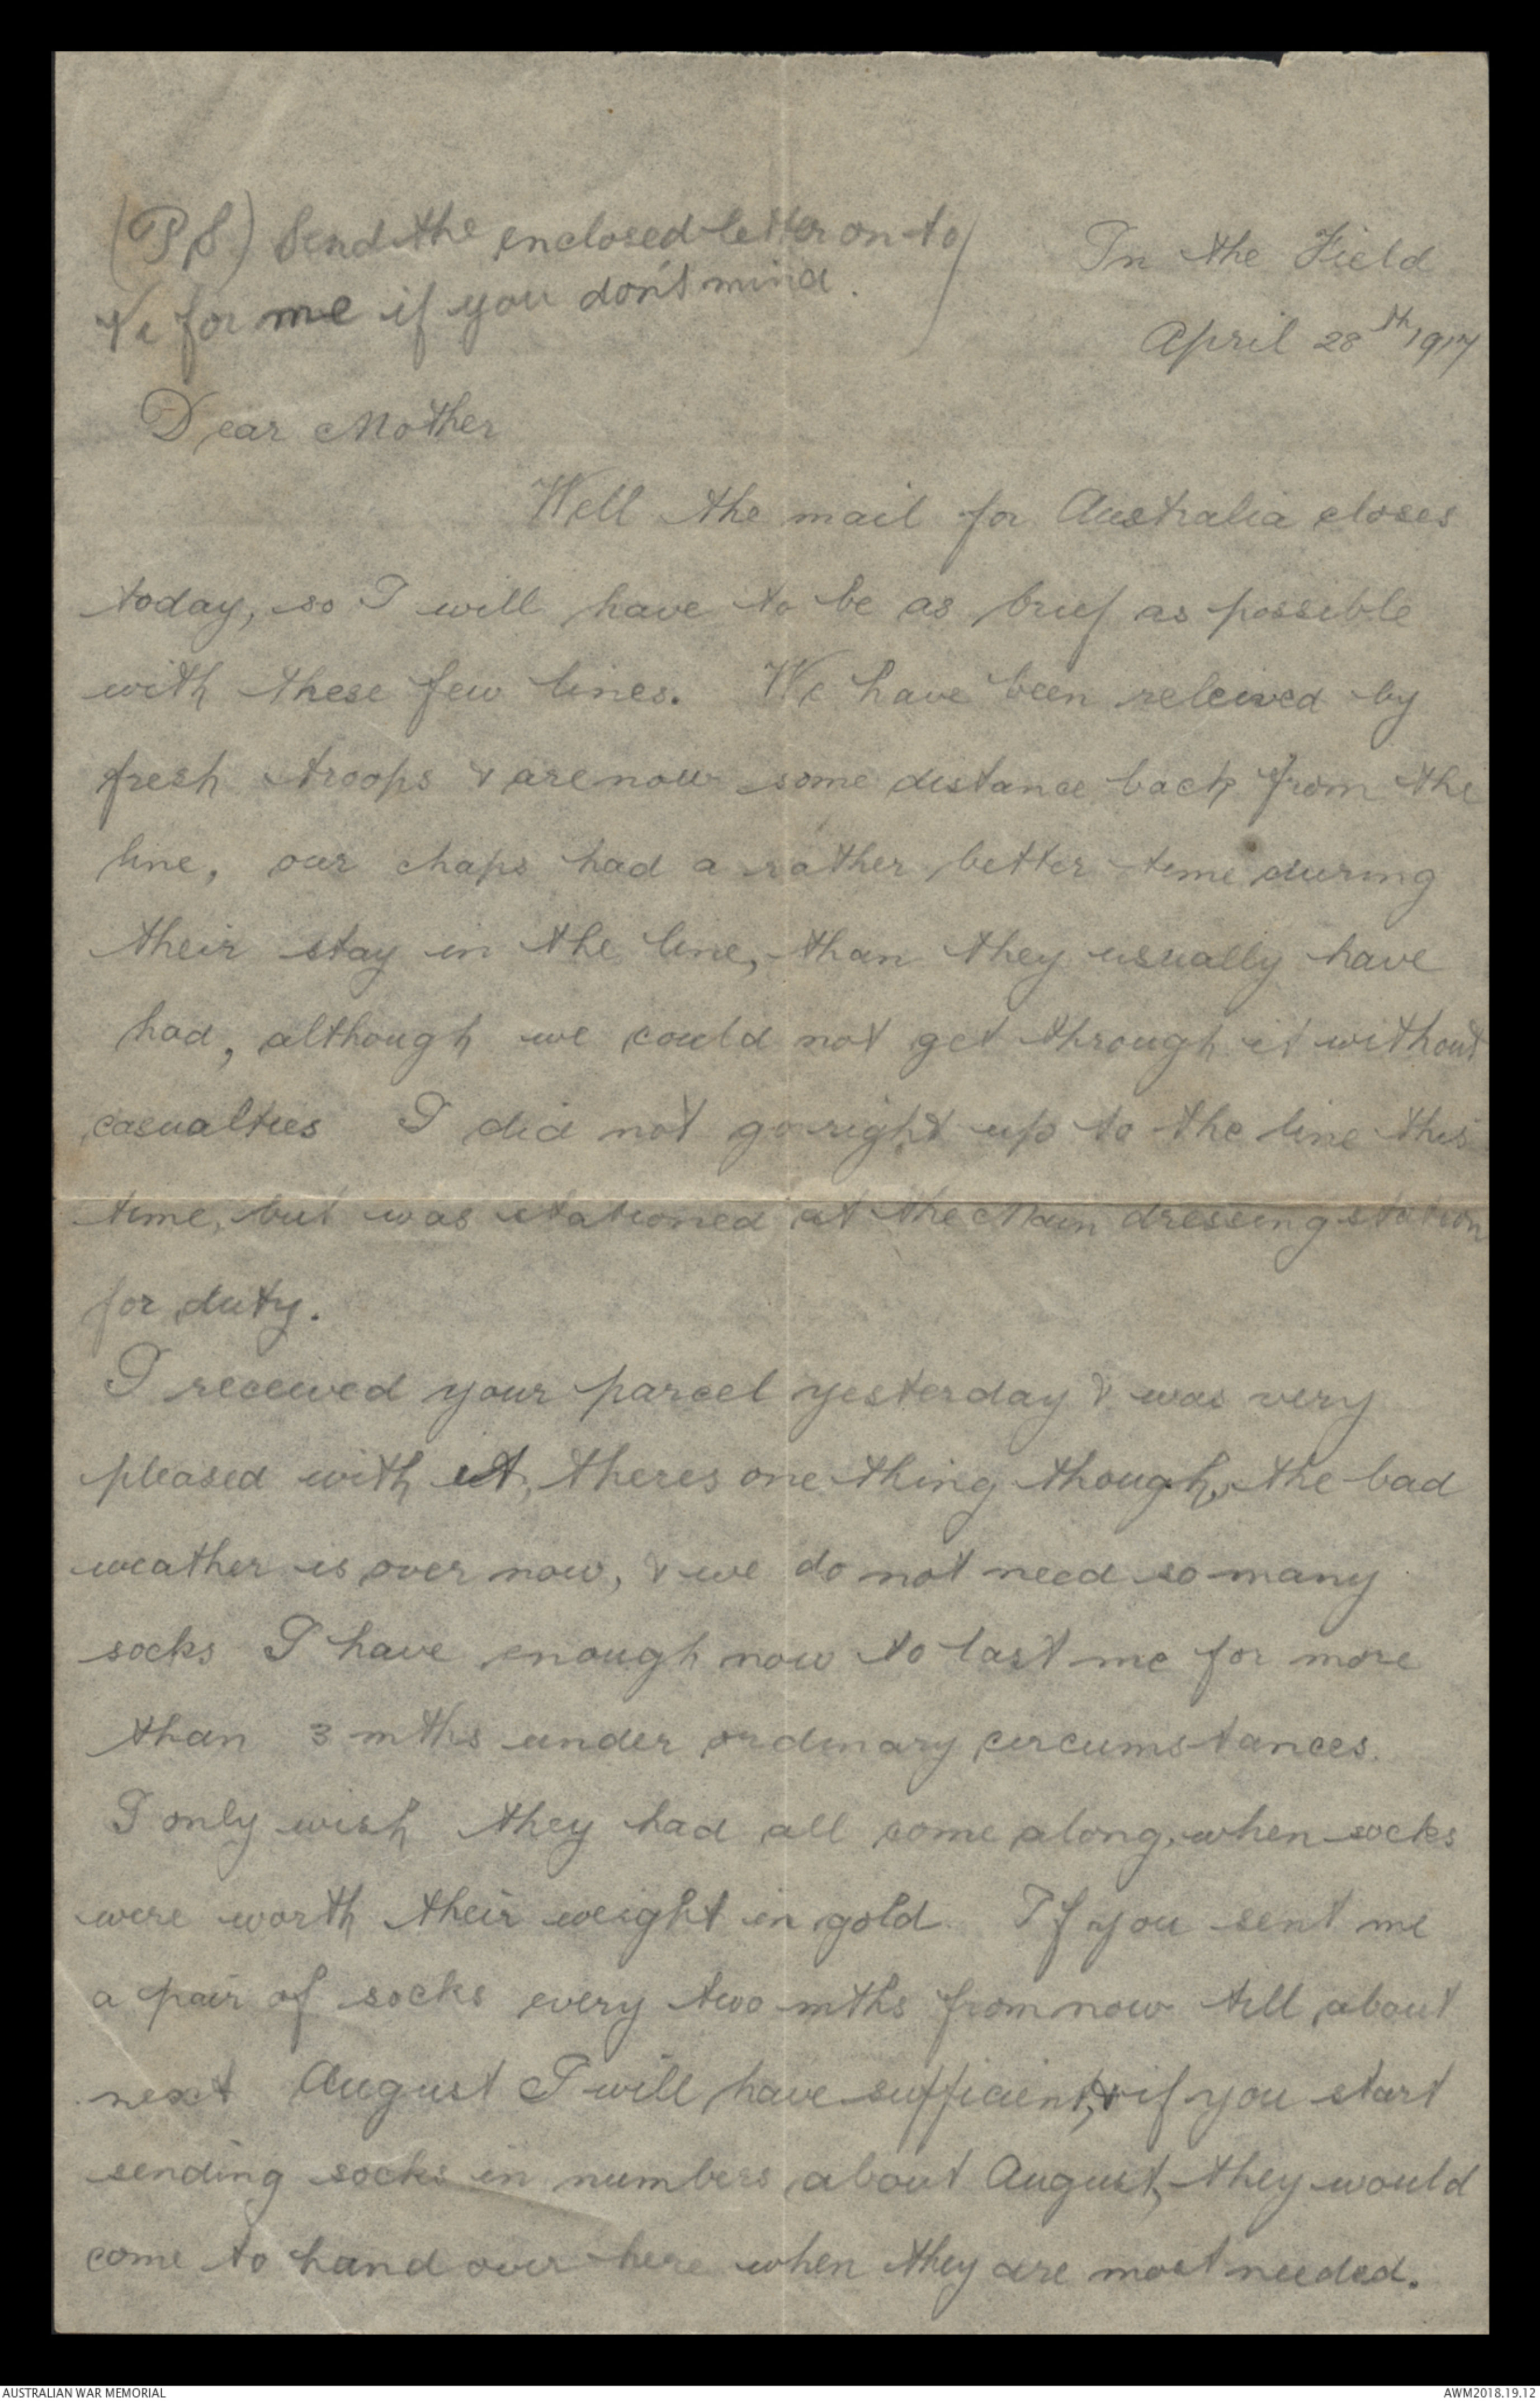 (P.S.) Send the enclosed letter on to
Vi for me if you don't mind.
In the Field
April 28th 1917
Dear Mother
Well the mail for Australia closes
today, so I will have to be as brief as possible
with these few lines. We have been releived by
fresh troops & are now some distance back from the
line, our chaps had a rather better time during
their stay in the line, than they usually have
had, although we could not get through it without
casualties I did not go right up to the line this
time, but was stationed at the Main dressing station
for duty.
I received your parcel yesterday & was very
pleased with it, theres one thing though, the bad
weather is over now, & we do not need so many
socks I have enough now to last me for more
than 3 mths under ordinary circumstances.
I only wish they had all come along, when socks
were worth their weight in gold. If you sent me
a pair of socks every two mths from now till about
next August I will have sufficient, & if you start
sending socks in numbers about August, they would
come to hand over here when they are most needed.
AUSTRALIAN WAR MEMORIAL
AWM2018.19.12